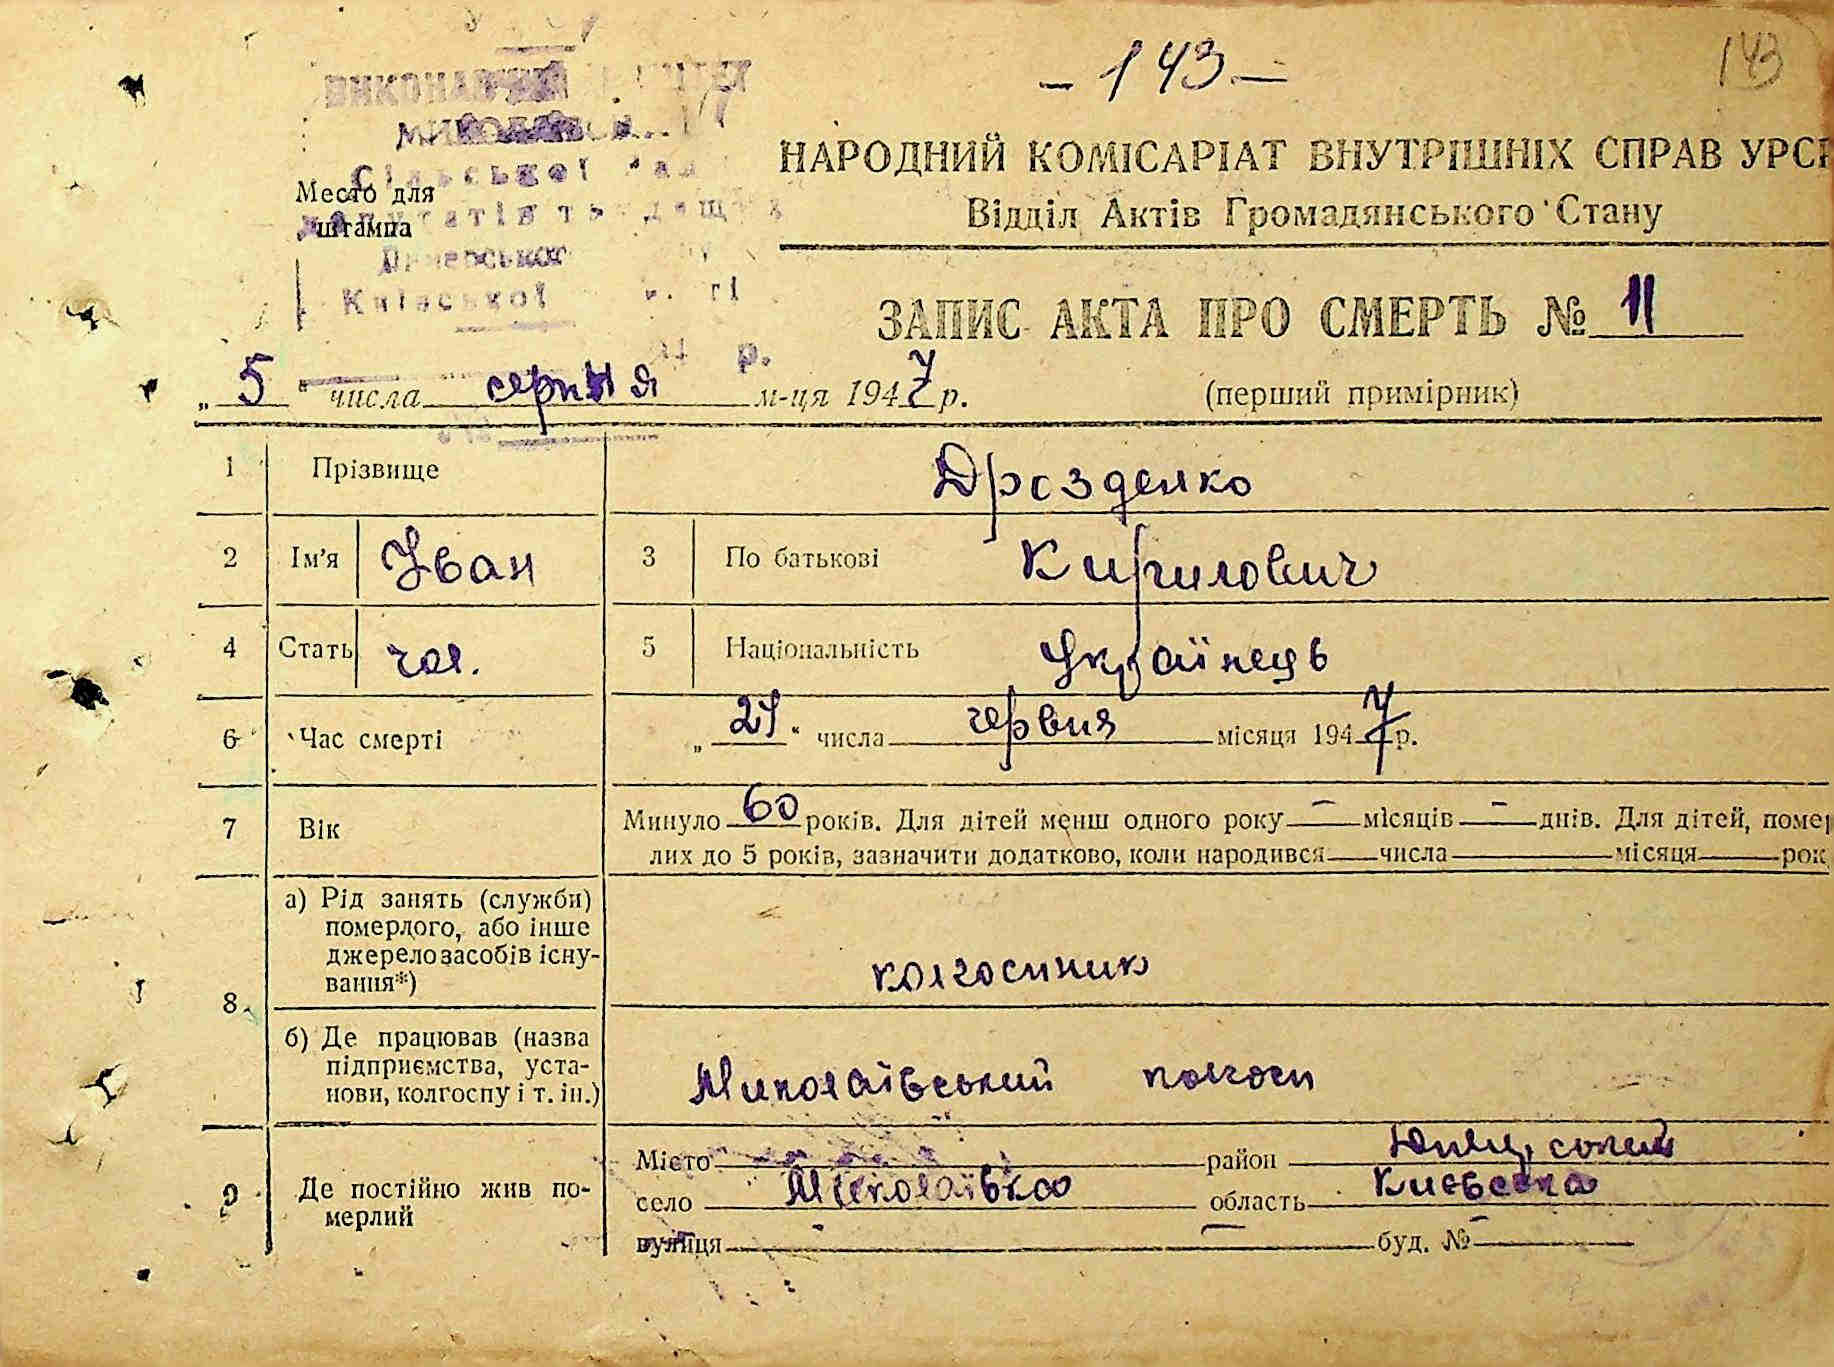 - 143 -
143
Сільської
Місто для
штампа
Київської
р.
НАРОДНИЙ КОМІСАРІАТ ВНУТРІШНІХ СПРАВ УРСР
Відділ Актів Громадянського Стану
ЗАПИС АКТА ПРО СМЕРТЬ № 11
„ 5 " числа серпня м-ця 1947 р. (перший примірник)
1 Прізвище Дрозденко
2 Ім'я Іван 3 По батькові Кирилович
4 Стать чол. 5 Національність Українець
6 Час смерті „ 27 " числа червня місяця 1947 р.
7 Вік Минуло 60 років. Для дітей менш одного року – місяців – днів. Для дітей, помер
лих до 5 років, зазначити додатково, коли народився числа місяця рок
8 а) Рід занять (служби)
померлого, або інше
джерело засобів існу-
вання*) колгоспник
б) Де працював (назва
підприємства, уста-
нови, колгоспу і т. ін.) Миколаївський колгосп
9 Де постійно жив по-
мерлий
Місто район
село Миколаївка область Києвска
вулиця – – буд. № –